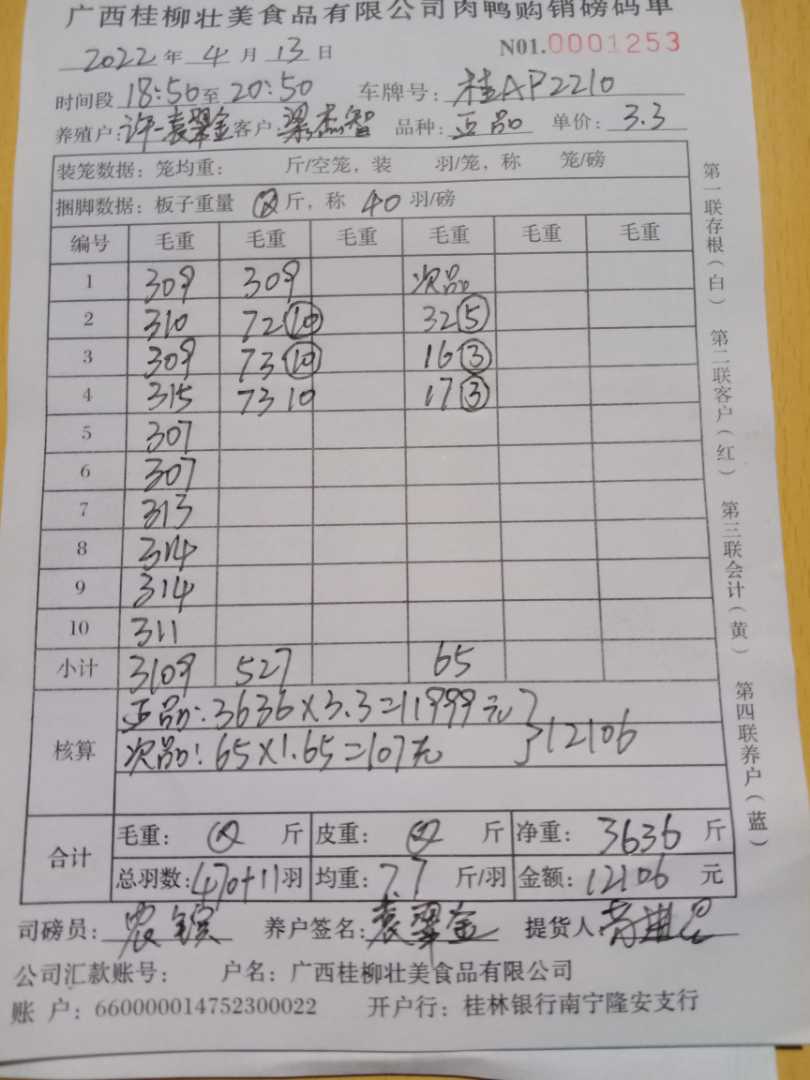 广西桂柳壮美食品有限公司肉鸭购销磅码单
2022年4月13日 N01.0001253
时间段18:50至20:50 车牌号:桂AP2210
养殖户:许一袁翠金 客户:梁杰智 品种:正品 单价:3.3
装笼数据:笼均重: 斤/空笼,装 羽/笼,称 笼/磅
捆脚数据:板子重量 斤,称40羽/磅
编号 毛重 毛重 毛重 毛重 毛重 毛重
1 309 309 次品
2 310 72⑩ 32⑤
3 309 73⑩ 16③
4 315 73 10 17③
5 307
6 307
7 313
8 314
9 314
10 311
小计 3109 527 65
核算 正品:3636×3.3=11999元 }12106
次品:65×1.65=107元
合计 毛重: 斤 皮重: 斤 净重:3636斤
总羽数:470+11羽 均重:7.7斤/羽 金额:12106元
司磅员:农 养户签名:袁翠金 提货人:
公司汇款账号: 户名:广西桂柳壮美食品有限公司
账 户:660000014752300022 开户行:桂林银行南宁隆安支行
第一联存根(白) 第二联客户(红) 第三联会计(黄) 第四联养户(蓝)